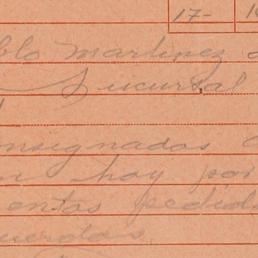 17-
blo Martinez
Sucursal
onsignadas
hoy por
entas pedid
uerdas